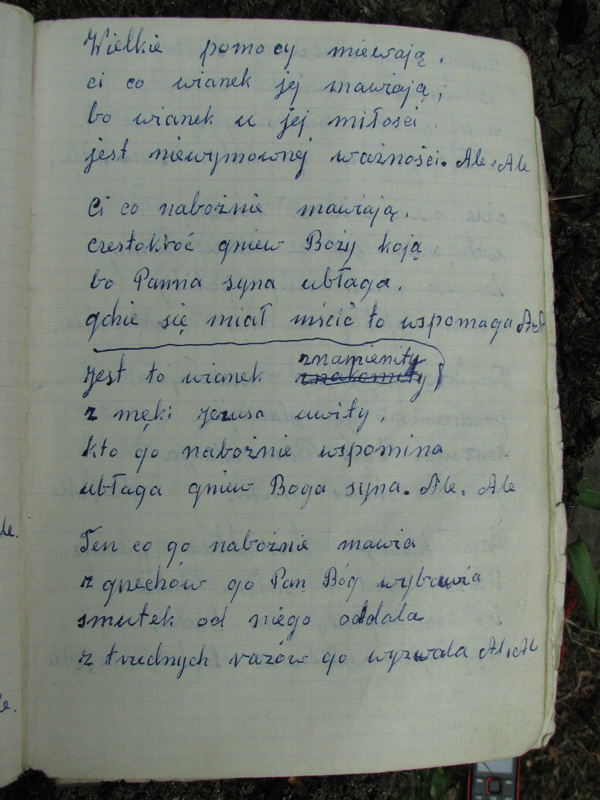 Wielkie pomocy miewają,
ci co wianek jej mawiają,
bo wianek u jej miłości
jest niewymownej ważności. Ale, Ale
Ci co nabożnie mawiają,
częstokroć gniew Boży koją
bo Panna syna ubłaga,
gdzie się miał mścić to wspomaga A, A
znamienity
Jest to wianek znakomity
z męki Jezusa uwity,
kto go nabożnie wspomina
ubłaga gniew Boga syna. Ale, Ale
Ten co go nabożnie mawia
z grzechów go Pan Bóg wybawia
smutek od niego oddala
z trudnych razów go wyzwala Al, Al
le.
e.